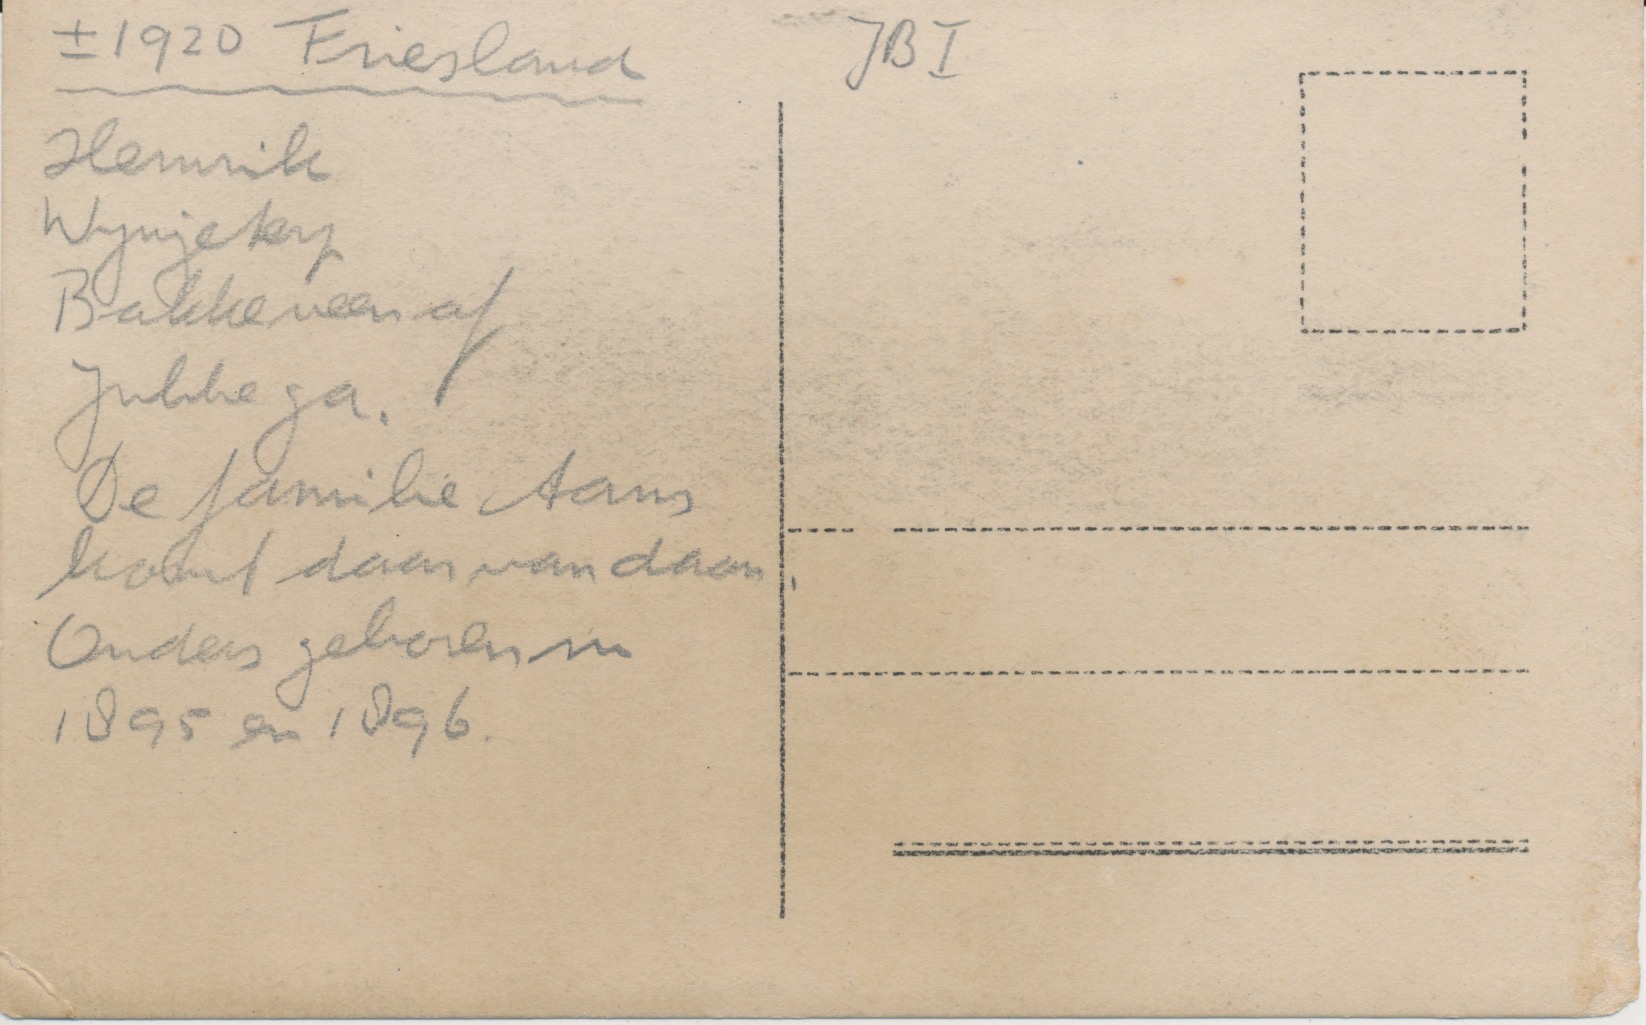 ± 1920 Friesland
JB I
Hemrik
Wynjeterp
Bakkeveen of
Jubbega.
De familie Aans
komt daar vandaan.
Ouders geboren in
1895 en 1896.